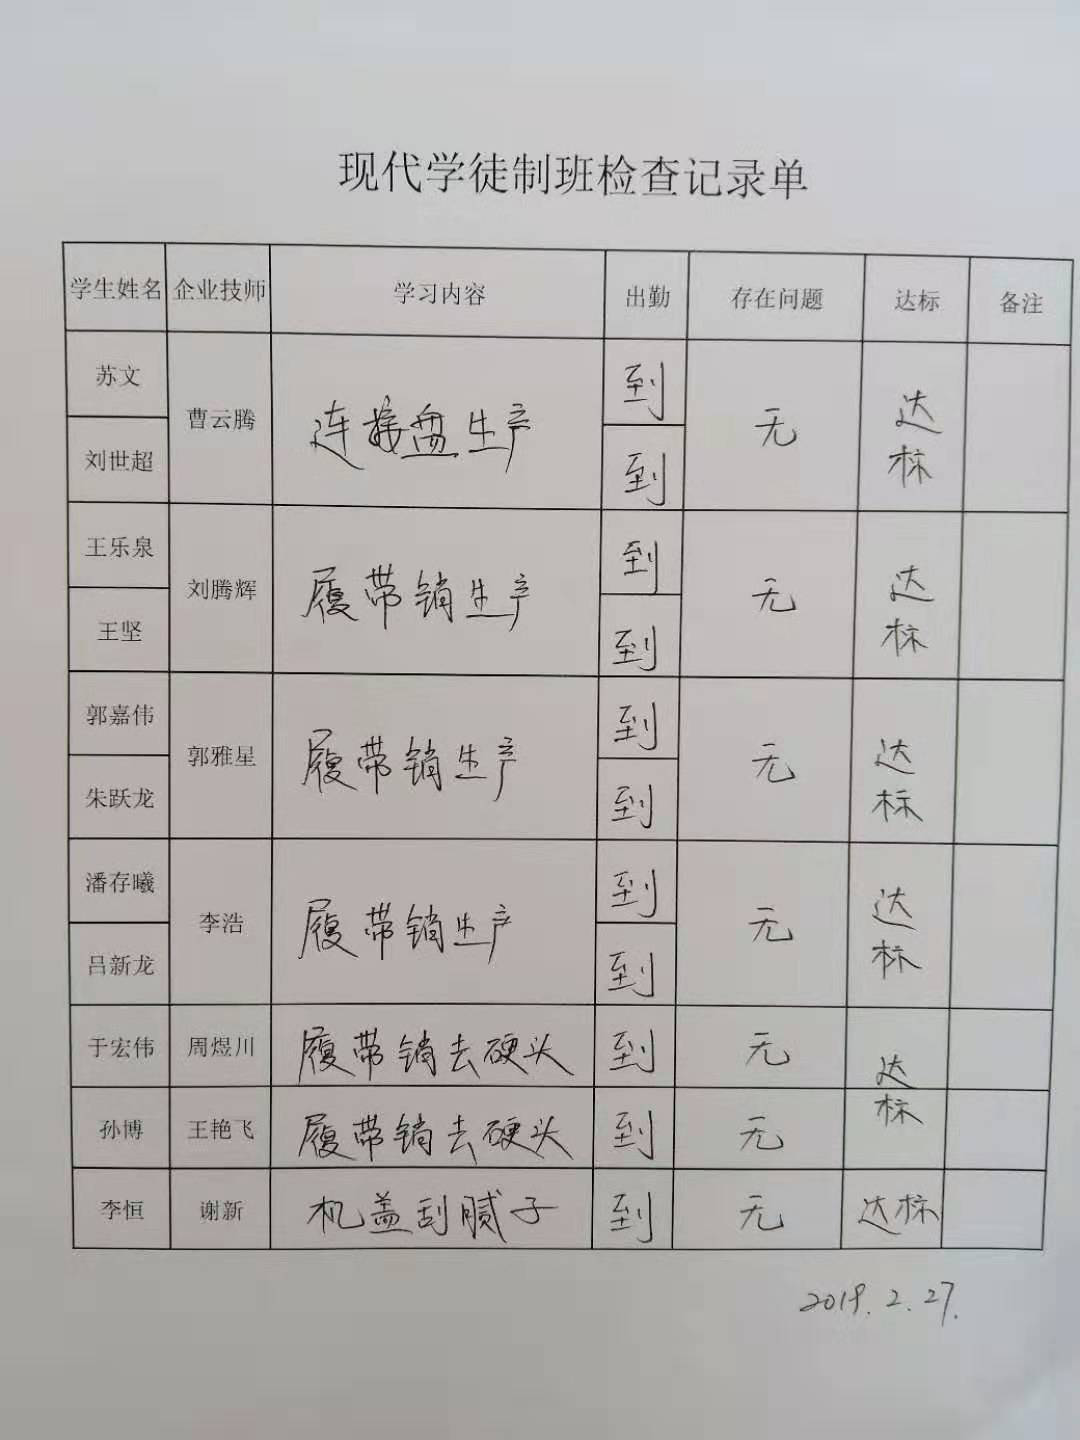 现代学徒制班检查记录单
学生姓名 企业技师 学习内容 出勤 存在问题 达标 备注
苏文 曹云腾 连接盘生产 到 无 达标
刘世超 到
王乐泉 刘腾辉 履带销生产 到 无 达标
王坚 到
郭嘉伟 郭雅星 履带销生产 到 无 达标
朱跃龙 到
潘存曦 李浩 履带销生产 到 无 达标
吕新龙 到
于宏伟 周煜川 履带销去硬头 到 无 达标
孙博 王艳飞 履带销去硬头 到 无
李恒 谢新 机盖刮腻子 到 无 达标
2019.2.27.